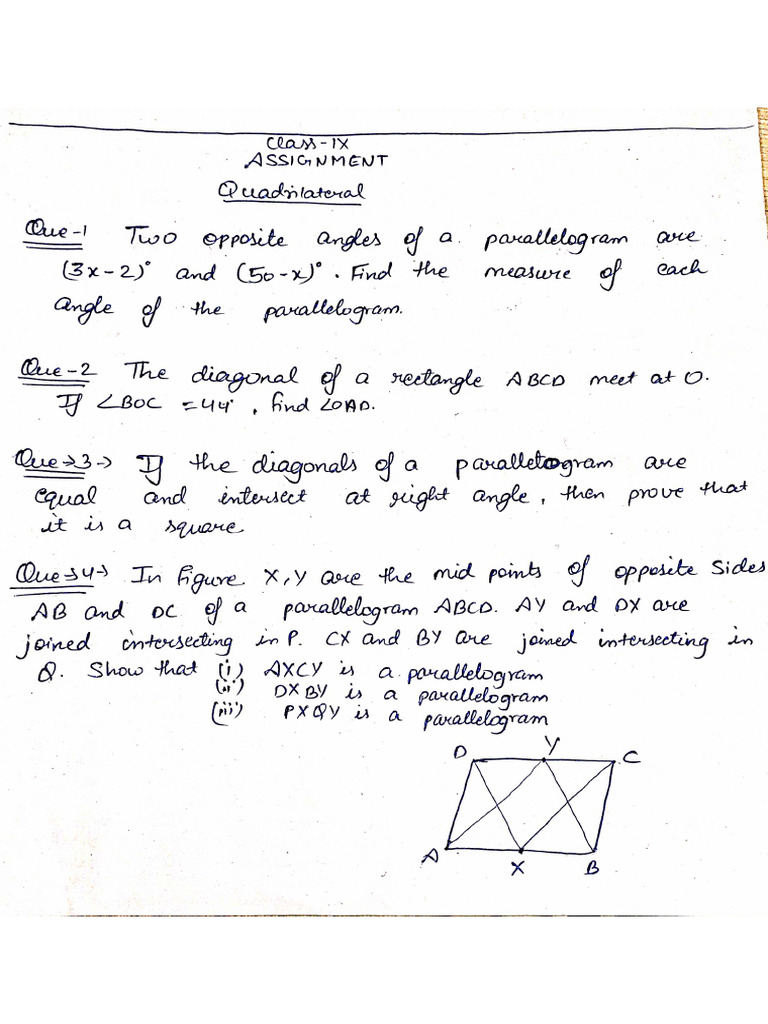 Class-IX
ASSIGNMENT
Quadrilateral
Que-1 Two opposite angles of a parallelogram are
(3x-2)° and (50-x)°. Find the measure of each
angle of the parallelogram.
Que-2 The diagonal of a rectangle ABCD meet at O.
If ∠BOC = 44°, find ∠OAD.
Que→3→ If the diagonals of a parallelogram are
equal and intersect at right angle, then prove that
it is a square
Que→4→ In figure X, Y are the mid points of opposite sides
AB and DC of a parallelogram ABCD. AY and DX are
joined intersecting in P. CX and BY are joined intersecting in
Q. Show that (i) AXCY is a parallelogram
(ii) DXBY is a parallelogram
(iii) PXQY is a parallelogram
D Y C
A X B